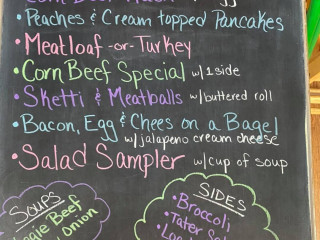 Corn Beef Hash
• Peaches & Cream topped Pancakes
• Meatloaf -or- Turkey
• Corn Beef Special w/1 side
• Sketti & Meatballs w/buttered roll
• Bacon, Egg & Chees on a Bagel
w/jalapeno cream cheese
• Salad Sampler w/cup of soup
SOUPS
Beef
Onion
SIDES
• Broccoli
• Tater